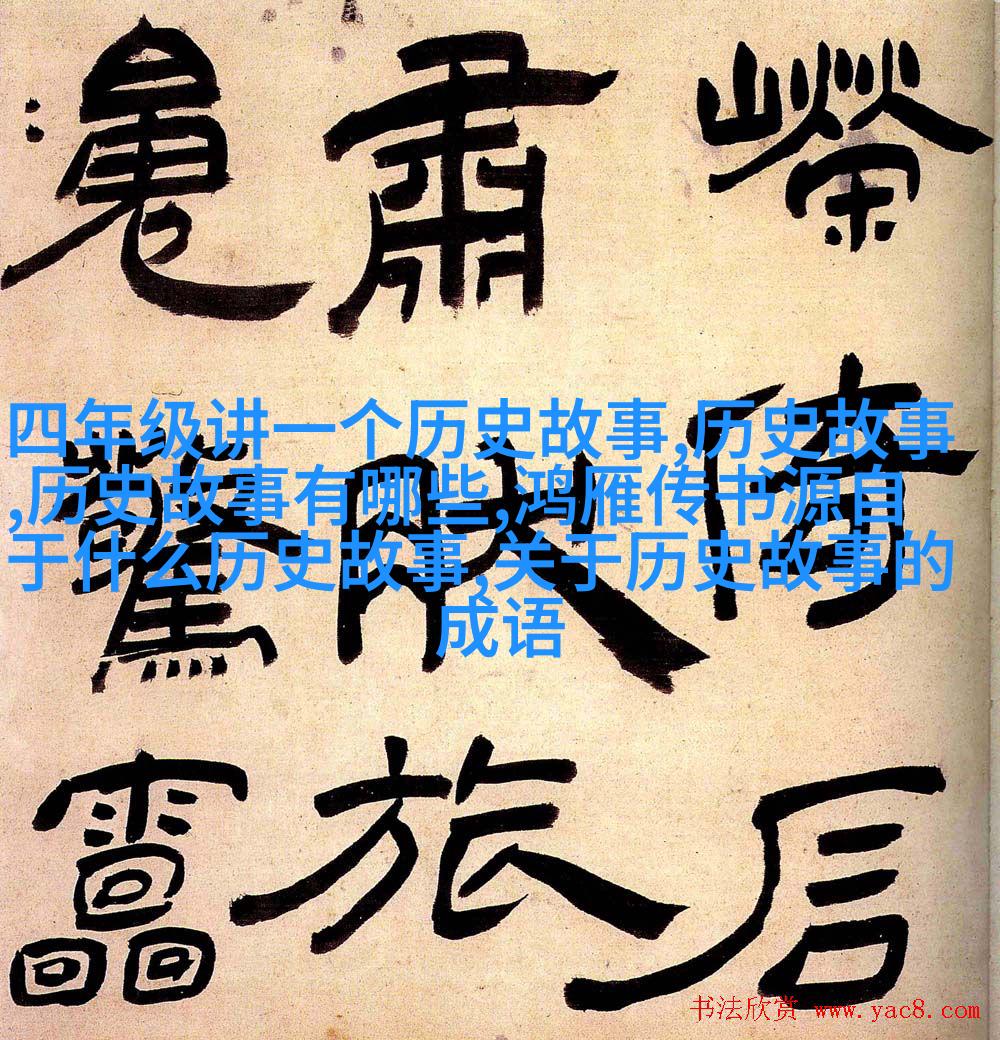 四年级讲一个历史故事,历史故事
,历史故事有哪些,鸿雁传书源自
于什么历史故事,关于历史故事的
成语
倚
肅旅
驚靁
书法欣赏 www.yac8.com